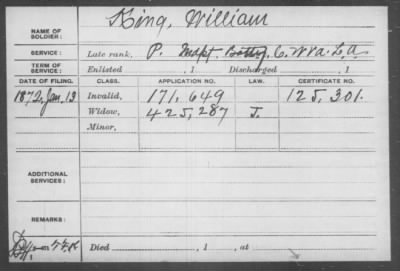 King, William
NAME OF SOLDIER:
SERVICE: Late rank, P. Indpt. Battery, C. W Va. L. A.
TERM OF SERVICE: Enlisted , 1 Discharged , 1
DATE OF FILING. CLASS. APPLICATION NO. LAW. CERTIFICATE NO.
1872, Jan, 13 Invalid, 171,649 125,301.
Widow, 425,287 J.
Minor,
ADDITIONAL SERVICES:
REMARKS:
Died , 1 , at